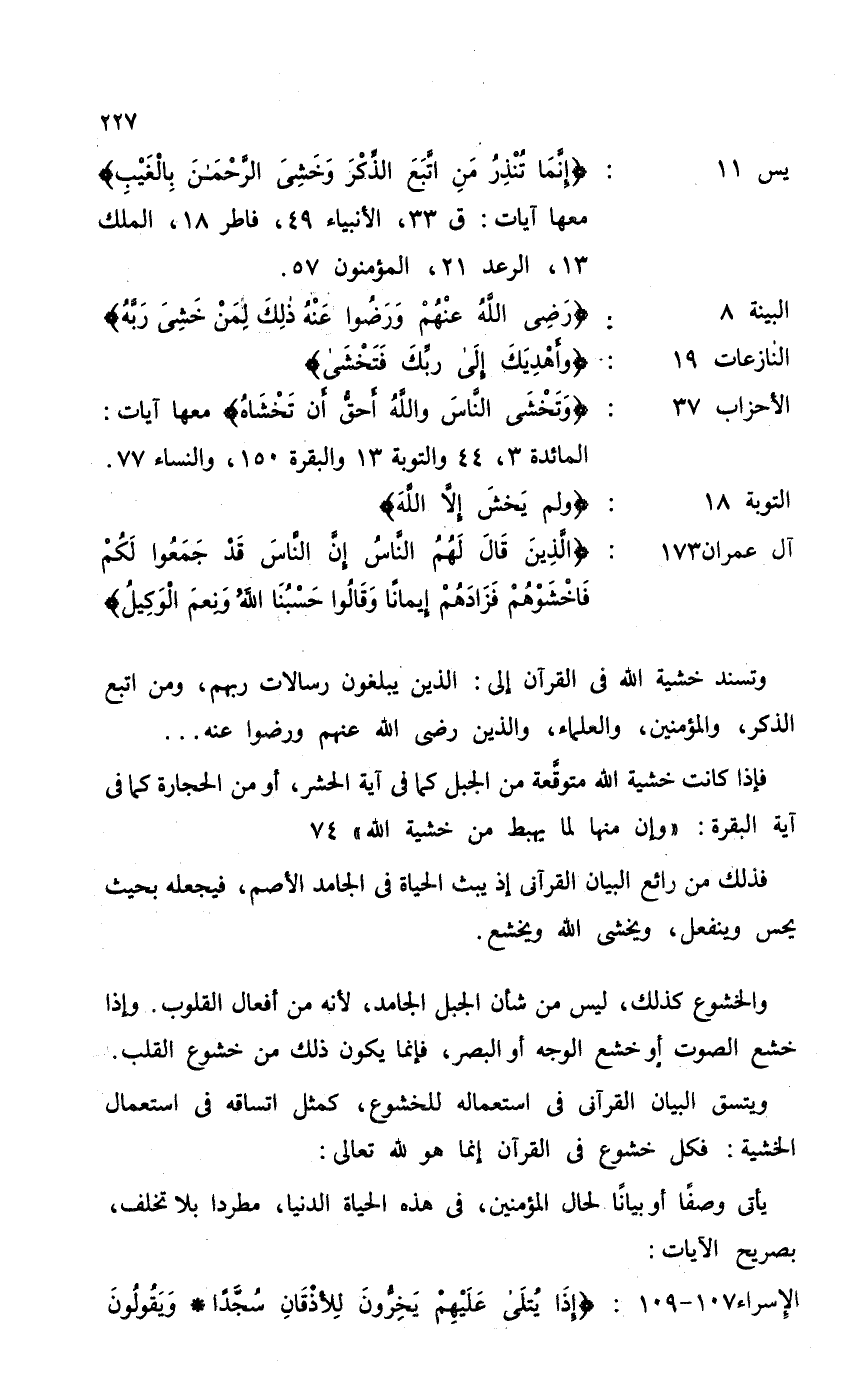 ٢٢٧
يس ١١ : ﴿إِنَّمَا تُنْذِرُ مَنِ اتَّبَعَ الذِّكْرَ وَخَشِىَ الرَّحْمَـٰنَ بِالْغَيْبِ﴾
معها آيات : ق ٣٣، الأنبياء ٤٩، فاطر ١٨، الملك
١٣، الرعد ٢١، المؤمنون ٥٧.
البينة ٨ : ﴿رَضِى اللَّهُ عنْهُمْ وَرَضُوا عَنْهُ ذٰلِكَ لِمَنْ خَشِىَ رَبَّهُ﴾
النازعات ١٩ : ﴿وأَهْدِيَكَ إِلَىٰ ربِّكَ فَتَخْشَىٰ﴾
الأحزاب ٣٧ : ﴿وَتَخْشَى النَّاسَ واللَّهُ أَحقُّ أَن تَخْشَاهُ﴾ معها آيات :
المائدة ٣، ٤٤ والتوبة ١٣ والبقرة ١٥٠، والنساء ٧٧.
التوبة ١٨ : ﴿ولم يَخشَ إِلَّا اللَّهَ﴾
آل عمران١٧٣ : ﴿الَّذِينَ قَالَ لَهُمُ النَّاسُ إِنَّ النَّاسَ قَدْ جَمَعُوا لَكُمْ
فَاخْشَوْهُمْ فَزَادَهُمْ إِيمانًا وَقَالُوا حَسْبُنَا اللَّهُ وَنِعمَ الْوَكِيلُ﴾
وتسند خشية الله فى القرآن إلى : الذين يبلغون رسالات ربهم، ومن اتبع
الذكر، والمؤمنين، والعلماء، والذين رضى الله عنهم ورضوا عنه...
فإذا كانت خشية الله متوقَّعة من الجبل كما فى آية الحشر، أو من الحجارة كما فى
آية البقرة : «وإن منها لما يهبط من خشية الله» ٧٤
فذلك من رائع البيان القرآنى إذ يبث الحياة فى الجامد الأصم، فيجعله بحيث
يحس وينفعل، ويخشى الله ويخشع.
والخشوع كذلك، ليس من شأن الجبل الجامد، لأنه من أفعال القلوب. وإذا
خشع الصوت أو خشع الوجه أو البصر، فإنما يكون ذلك من خشوع القلب.
ويتسق البيان القرآنى فى استعماله للخشوع، كمثل اتساقه فى استعمال
الخشية : فكل خشوع فى القرآن إنما هو لله تعالى :
يأتى وصفًا أو بيانًا لحال المؤمنين، فى هذه الحياة الدنيا، مطردا بلا تخلف،
بصريح الآيات :
الإسراء١٠٧-١٠٩ : ﴿إِذَا يُتلَىٰ عَلَيْهِمْ يَخِرُّونَ لِلأَذْقَانِ سُجَّدًا * وَيَقُولُونَ